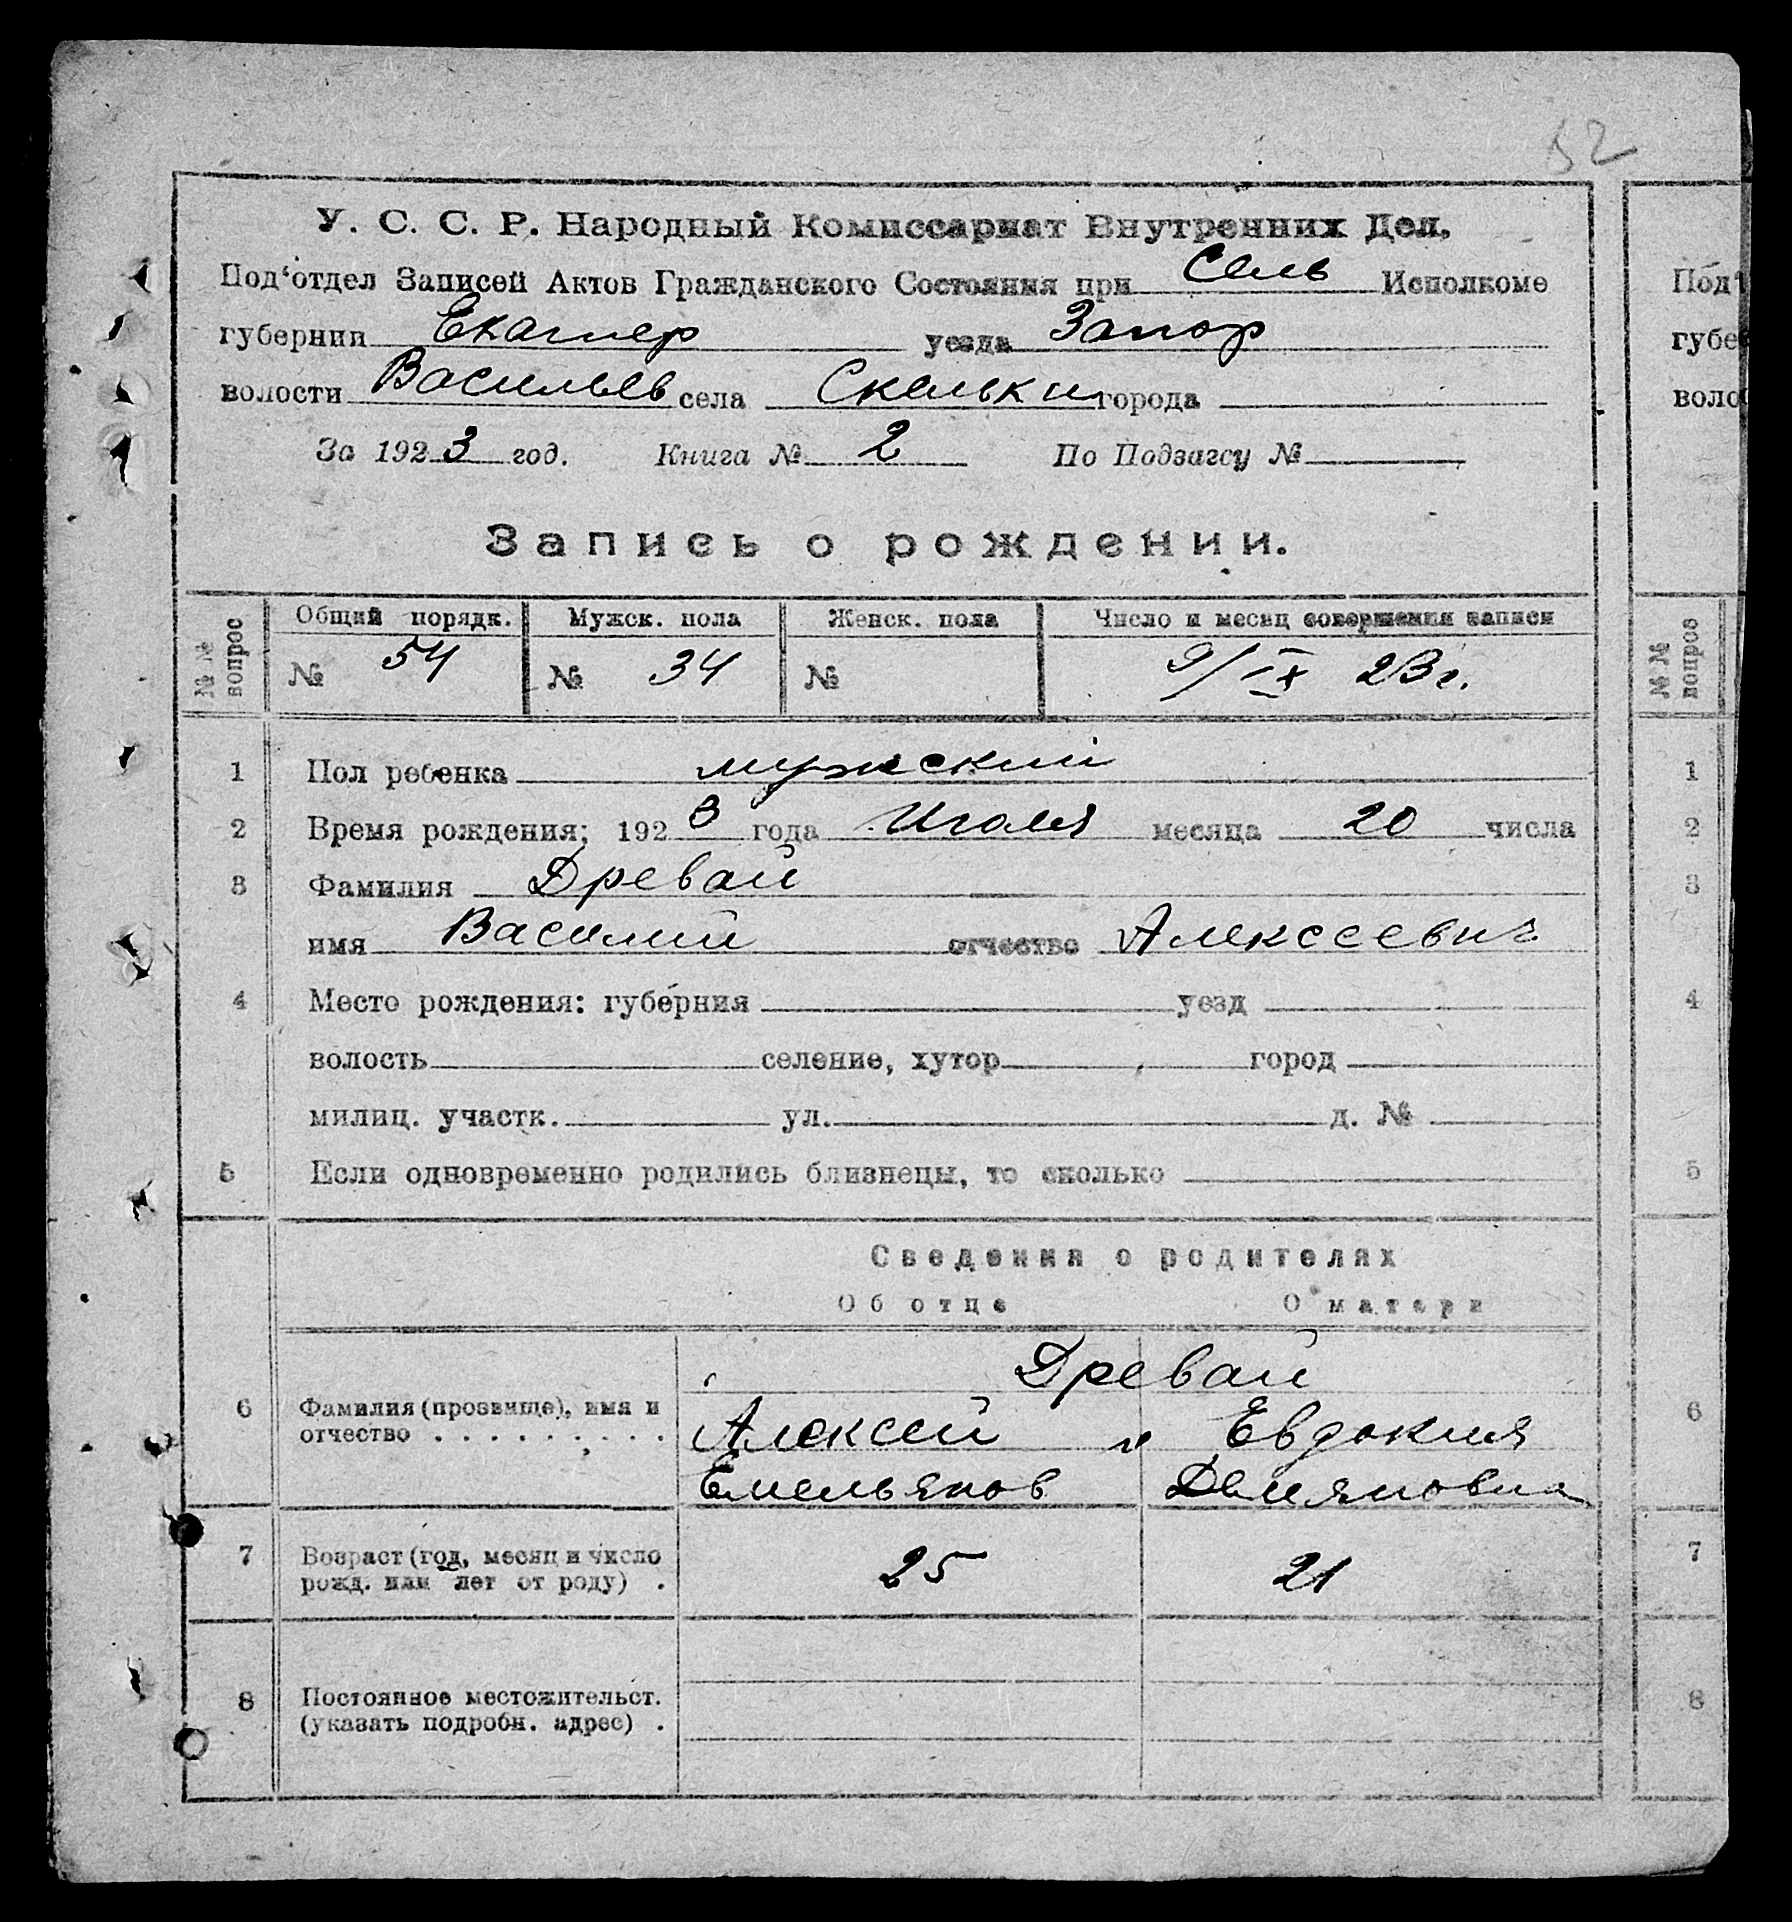 52
У. С. С. Р. Народный Комиссариат Внутренних Дел.
Под‘отдел Записей Актов Гражданского Состояния при Сель Исполкоме
губернии Екатер уезда Запор
волости Васильев села Скельки города
За 1923 год. Книга № 2 По Подзагсу №
Запись о рождении.
№ № вопрос
Общий порядк. Мужск. пола Женск. пола Число и месяц совершения записи
№ 54 № 34 № 9/IX 23 г.
1 Пол ребенка мужский
2 Время рождения; 1923 года Июля месяца 20 числа
3 Фамилия Древай
имя Василий отчество Алексеевич
4 Место рождения: губерния уезд
волость селение, хутор город
милиц. участк. ул. д. №
5 Если одновременно родились близнецы, то сколько
Сведения о родителях
Об отце О матери
Древай
6 Фамилия (прозвище), имя и отчество . . . . . . . . .
Алексей и Евдокия
Емельянов Демяновна
7 Возраст (год, месяц и число рожд. или лет от роду) . 25 21
8 Постоянное местожительст. (указать подробн. адрес) .
Под‘
губе
воло
№ № вопрос
1
2
3
4
5
6
7
8